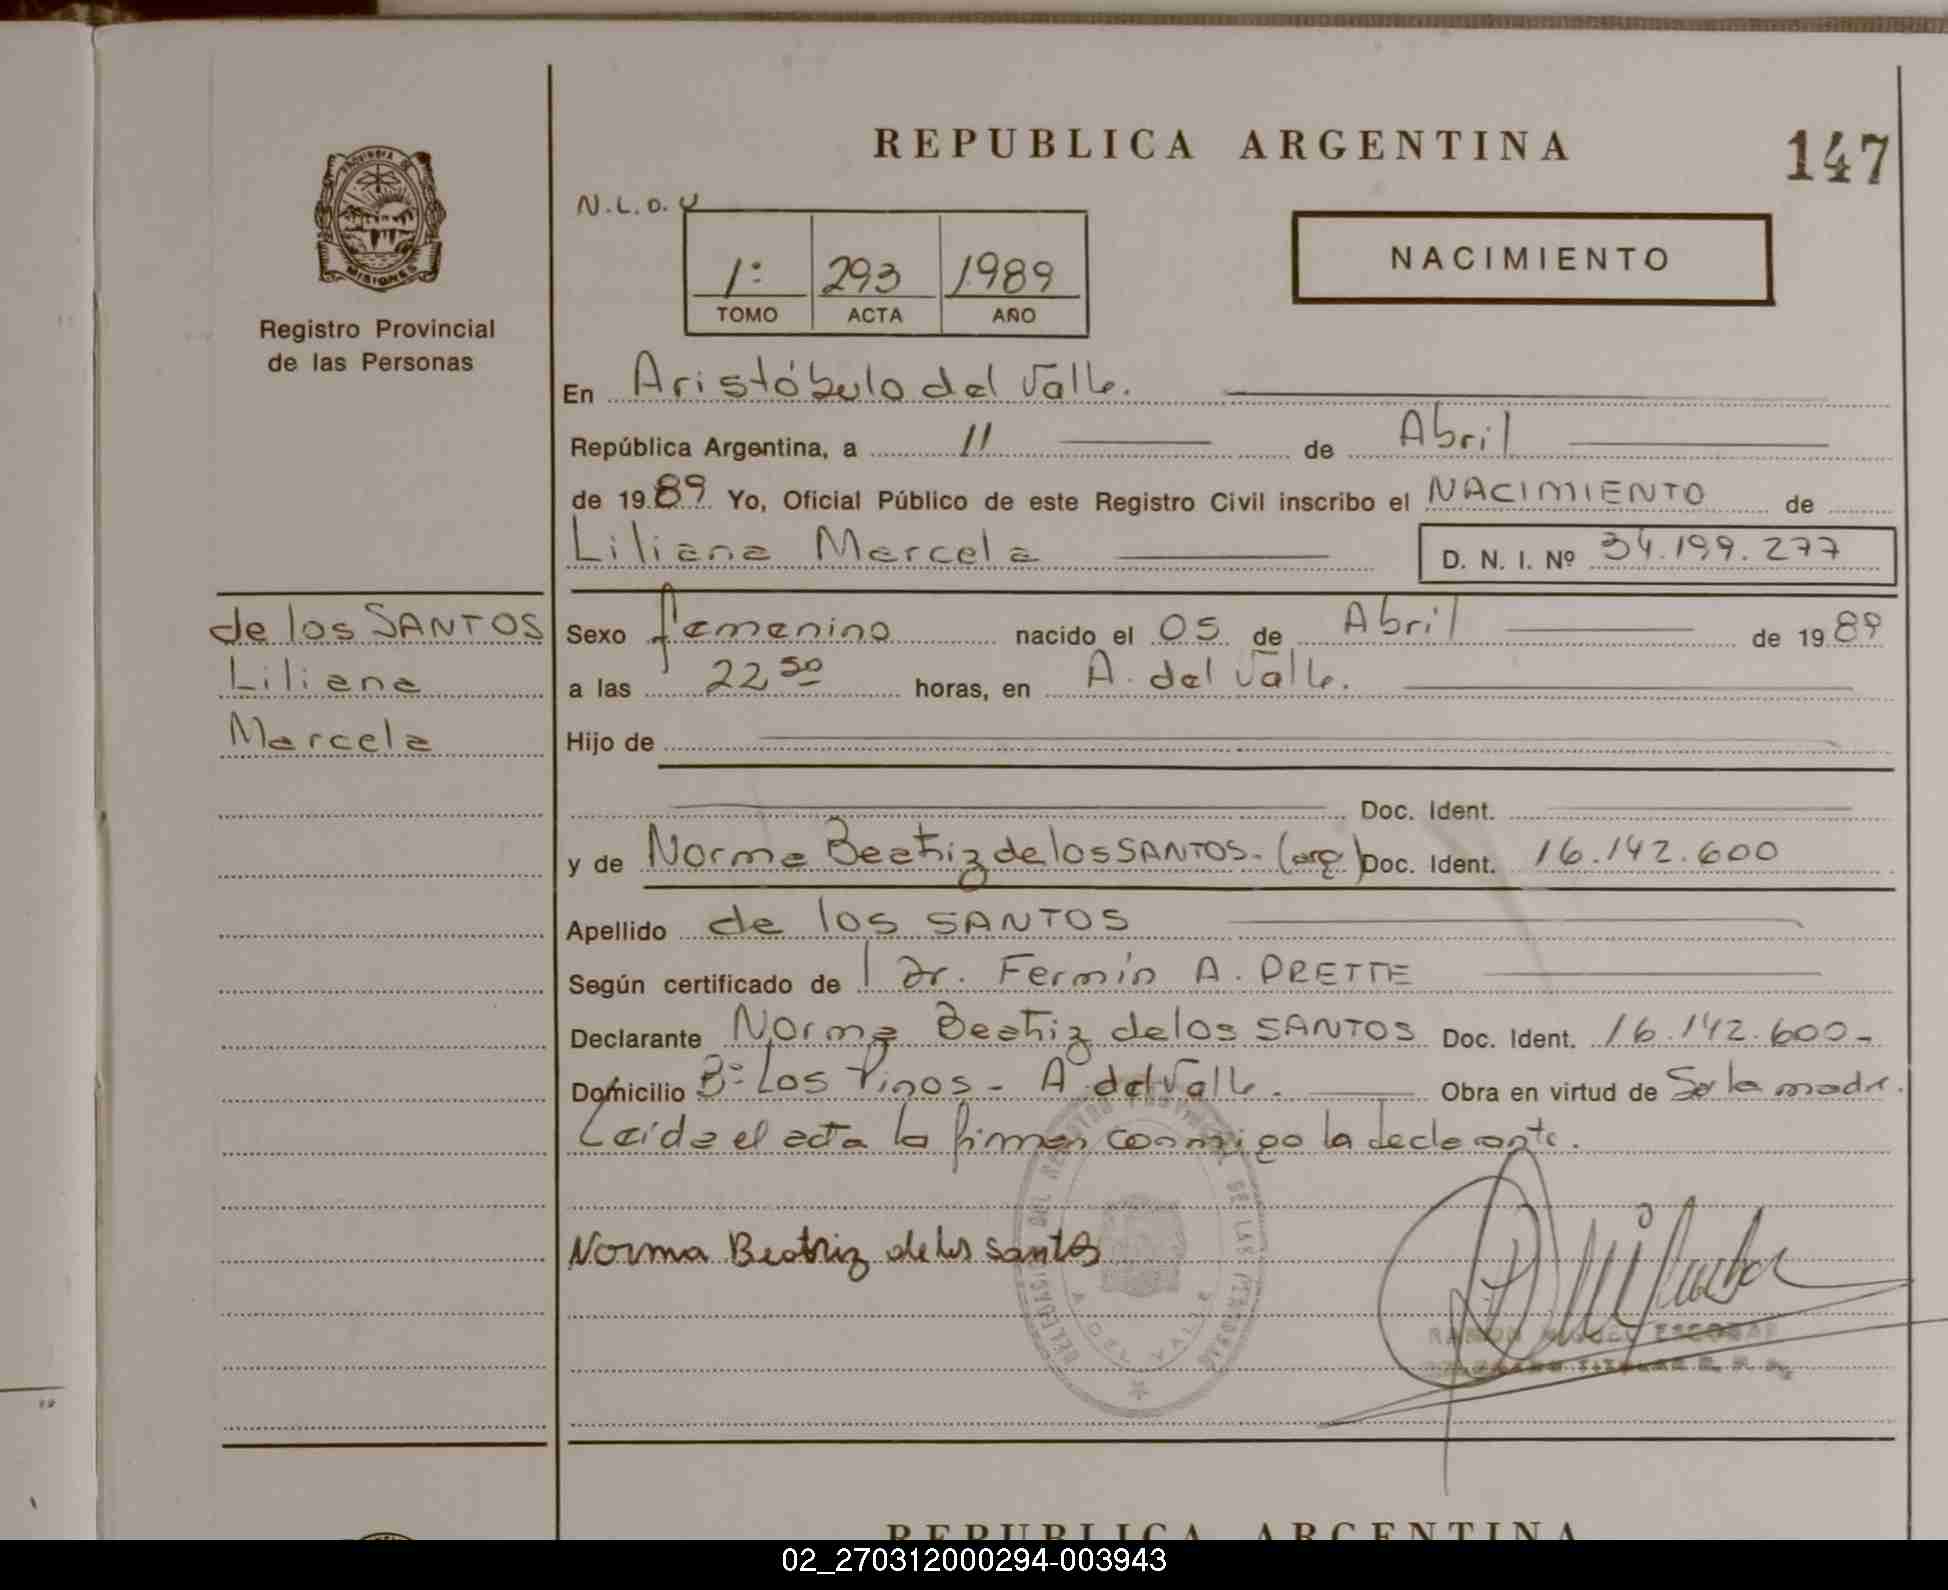 REPUBLICA ARGENTINA
147
PROVINCIA DE
MISIONES
Registro Provincial
de las Personas
N.L.O.Y
1º 293 1989
TOMO ACTA AÑO
NACIMIENTO
En Aristóbulo del Valle.
República Argentina, a 11 de Abril
de 1989 Yo, Oficial Público de este Registro Civil inscribo el NACIMIENTO de
Liliana Marcela D. N. I. Nº 34.199.277
de los SANTOS
Liliana
Marcela
Sexo femenino nacido el 05 de Abril de 1989
a las 22,50 horas, en A. del Valle.
Hijo de
Doc. Ident.
y de Norma Beatriz de los SANTOS. (arg.) Doc. Ident. 16.142.600
Apellido de los SANTOS
Según certificado de Dr. Fermín A. PRETTE
Declarante Norma Beatriz de los SANTOS Doc. Ident. 16.142.600-
Domicilio Bº Los Pinos - A. del Valle. Obra en virtud de Ser la madre.
Leída el acta la firman conmigo la declarante.
Norma Beatriz de los santos
DELEGACION DEL REGISTRO PROVINCIAL DE LAS PERSONAS
A. DEL VALLE
RAMON MIGUEL ESCOBAR
REPUBLICA ARGENTINA
02_270312000294-003943